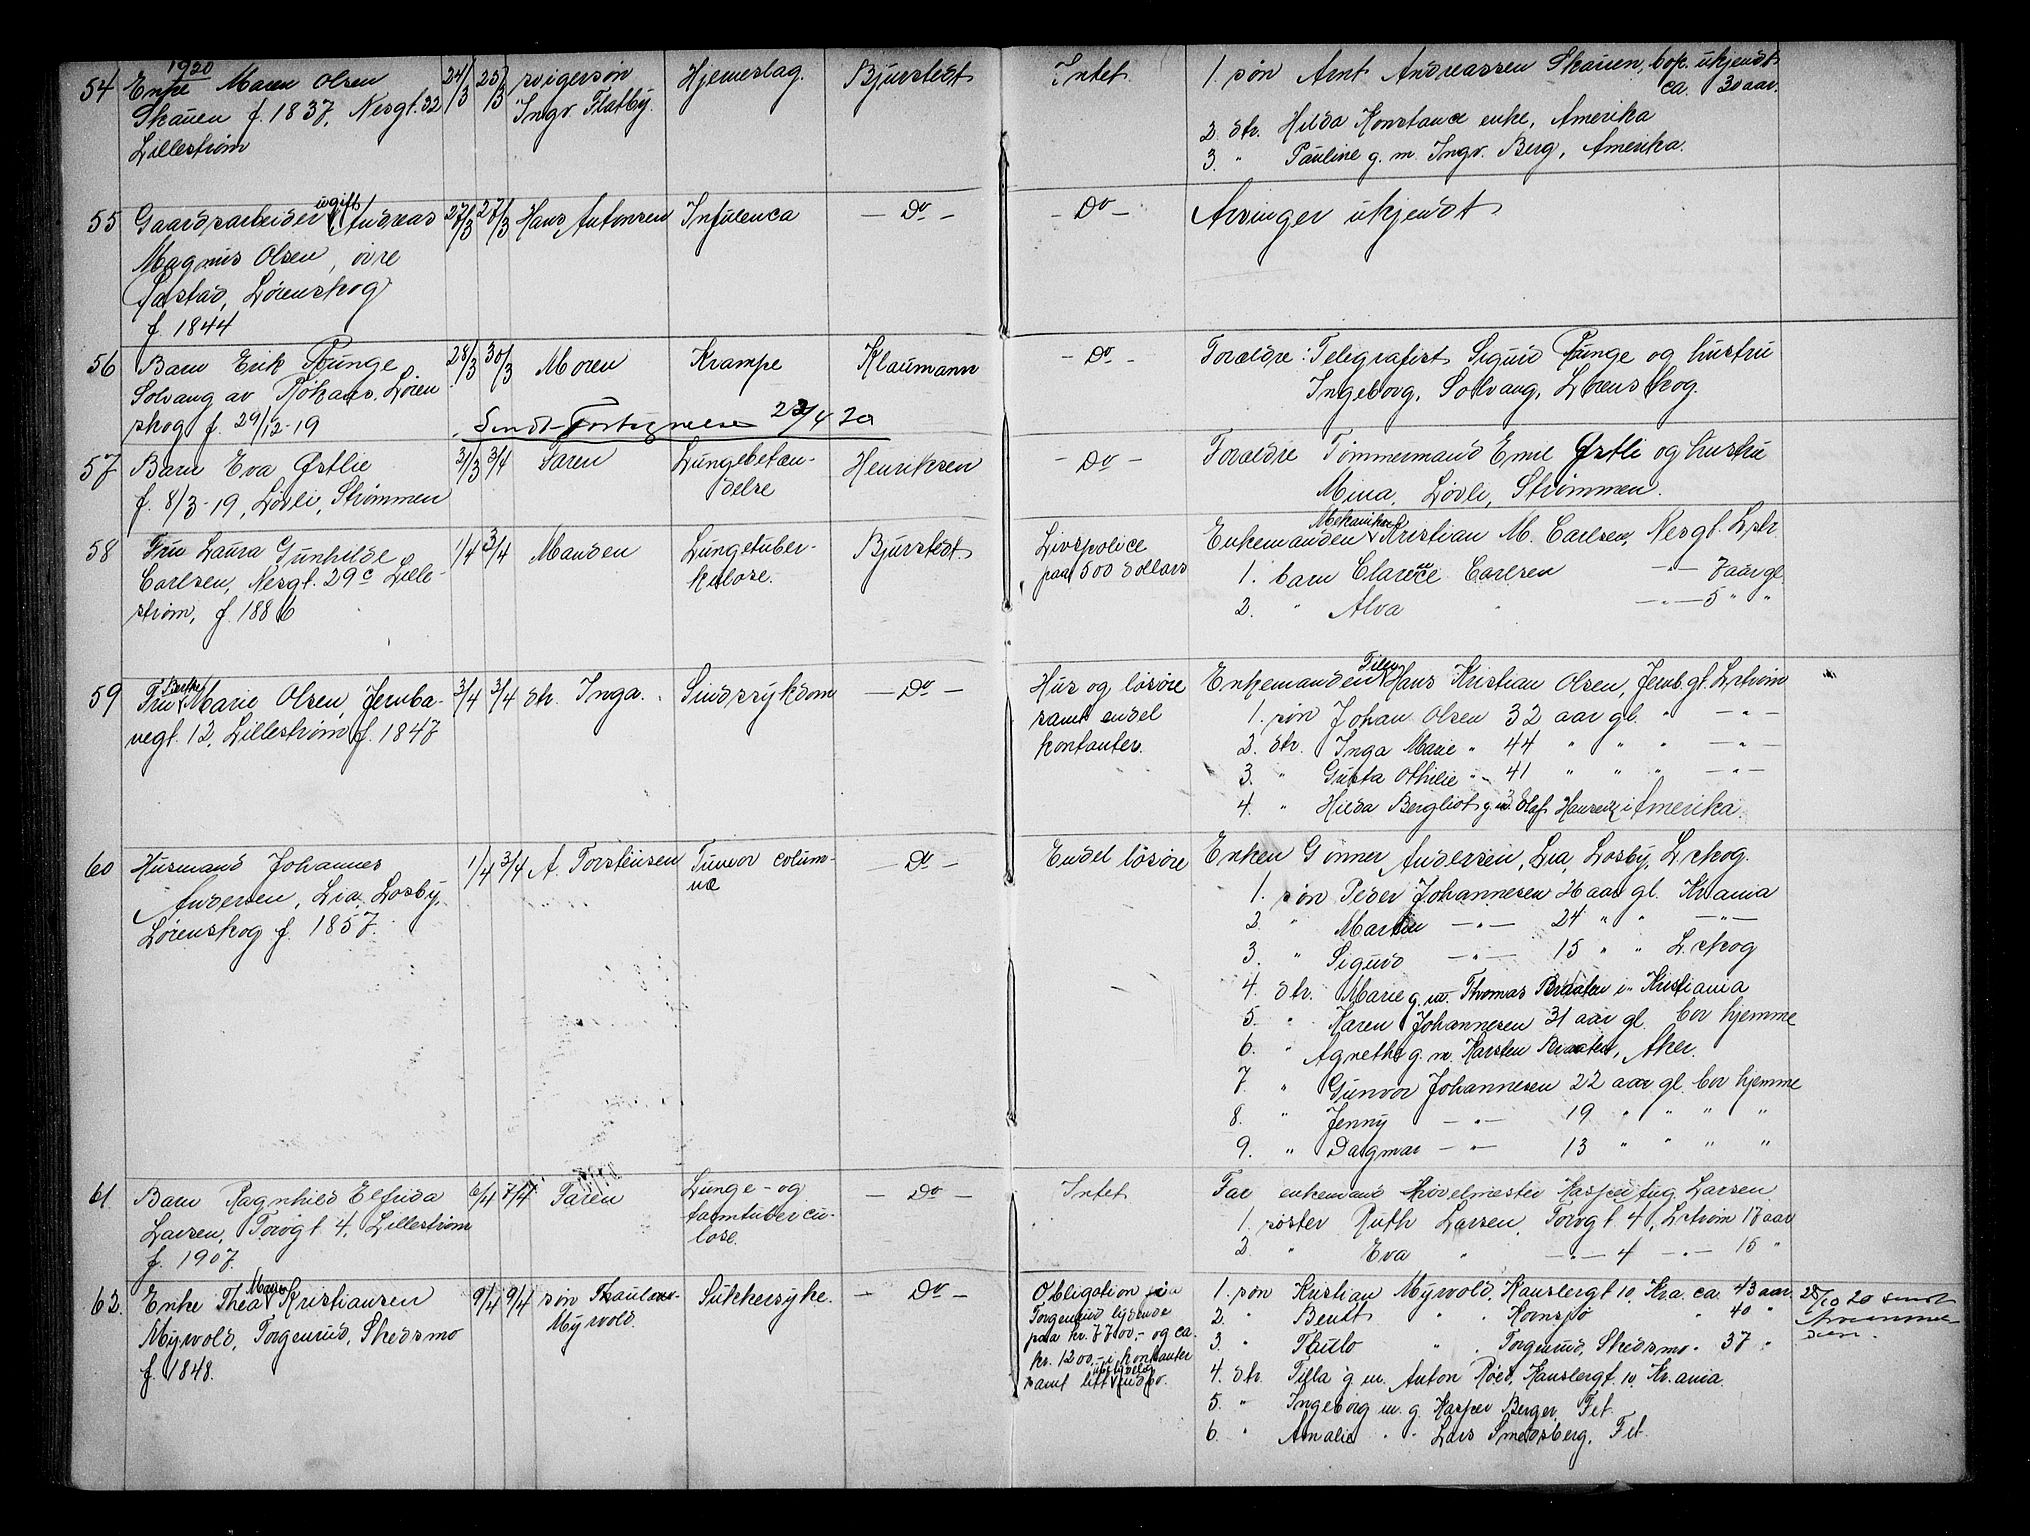 1920
54 Enke Maren Olsen
Skauen f. 1837, Nesgt. 22
Lillestrøm
24/3 25/3 svigersøn
Ingv. Flatby.
Hjerneslag.
Bjurstedt
Intet
1. søn Arnt Andreassen Skauen, bop. ukjendt
ca. 30 aar.
2. dtr. Hilda Konstance enke, Amerika
3. " Pauline g. m. Ingv. Berg, Amerika.
55 Gaardsarbeider ugift Andreas
Magnus Olsen, øvre
Lørenskog
f. 1844
27/3 27/3 Hans Antonsen
Infulenca
— Do —
— Do —
Arvinger ukjendt
56 Barn Erik Runge
Solvang av Røhans, Løren
skog f. 29/12-19
28/3 30/3 Moren
Krampe
Klaumann
— Do —
Forældre: Telegrafist Sigurd Runge og hustru
Ingeborg, Solvang, Lørenskog.
Sendt Fortegnelse 22/4 20
57 Barn Eva Østlie
f. 8/3-19, Løvli, Strømmen
31/3 3/4 Faren
Lungebetæn-
delse
Henriksen
— Do —
Forældre Tømmermand Emil Østli og hustru
Mina, Løvli, Strømmen.
58 Fru Laura Gunhilde
Carlsen, Nesgt. 29c Lille-
strøm, f. 1886
1/4 3/4 Manden
Lungetuber-
kulose.
Bjurstedt
Livspolice
paa 500 dollars
Enkemanden Mekaniker Kristian M. Carlsen, Nesgt. L.str.
1. barn Clarence Carlsen —"— 7 aar gl.
2. " Alva " —"— 5 " "
59 Fru Berthe Marie Olsen, Jernba-
negt. 12, Lillestrøm f. 1847
3/4 3/4 dtr. Inga.
Sindssykdom
— Do —
Hus og løsøre
samt endel
kontanter.
Enkemanden Hans Kristian Olsen, Jernb.gt. L.strøm
1. søn Johan Olsen 32 aar gl. " —"—
2. dtr. Inga Marie " 44 " " " —"—
3. " Gusta Othilie " 41 " " " —"—
4. " Hilda Bergliot g. m. Olaf Hansen i Amerika.
60 Husmand Johannes
Andersen, Lia, Losby,
Lørenskog f. 1857.
1/4 3/4 A. Torstensen
Tumor colum-
næ
— Do —
Endel løsøre
Enken Gunner Andersen, Lia, Losby, L.skog.
1. søn Peder Johannesen 26 aar gl. Kr.ania
2. " Martin —"— 24 " " —"—
3. " Sigurd —"— 15 " " L.skog
4. dtr. Marie g. m. Thomas Braaten i Kristiania
5. " Karen Johannesen 31 aar gl. bor hjemme
6. " Agnethe g. m. Karsten Braaten, Aker.
7. " Gunvor Johannesen 22 aar gl. bor hjemme
8. " Jenny —"— 19 " " " "
9. " Dagmar —"— 13 " " " "
61. Barn Ragnhild Elfrida
Larsen, Torvgt 4, Lillestrøm
f. 1907.
6/4 7/4 Faren
Lunge- og
tarmtubercu-
lose.
— Do —
Intet
Far enkemand Høvelmester Kasper Aug. Larsen
1. søster Ruth Larsen, Torvgt. 4, L.strøm 17 aar
2. " Eva " —"— 4 —"— 15 "
62. Enke Thea Marie Kristiansen
Myrvold, Torgerrud, Skedsmo
f. 1848.
9/4 9/4 søn Thaulow
Myrvold.
Sukkersyke.
— Do —
Obligation i
Torgerrud lydende
paa kr. 7700,- og ca.
kr. 1200,- i kontanter
samt litt ubetydelig indbo.
1. søn Kristian Myrvold, Kanslergt. 10, Kr.a. ca. 43 aar
2. " Bendt " " Kornsjø " 40 "
3. " Thulo " " Torgerrud, Skedsmo " 37 "
4. dtr. Tilla g. m. Anton Røed, Kanslergt. 10, Kr.ania
5. " Ingeborg m. g. Kasper Berger, Fet.
6. " Amalie " " Lars Smedsberg, Fet.
28/10 20 sendt